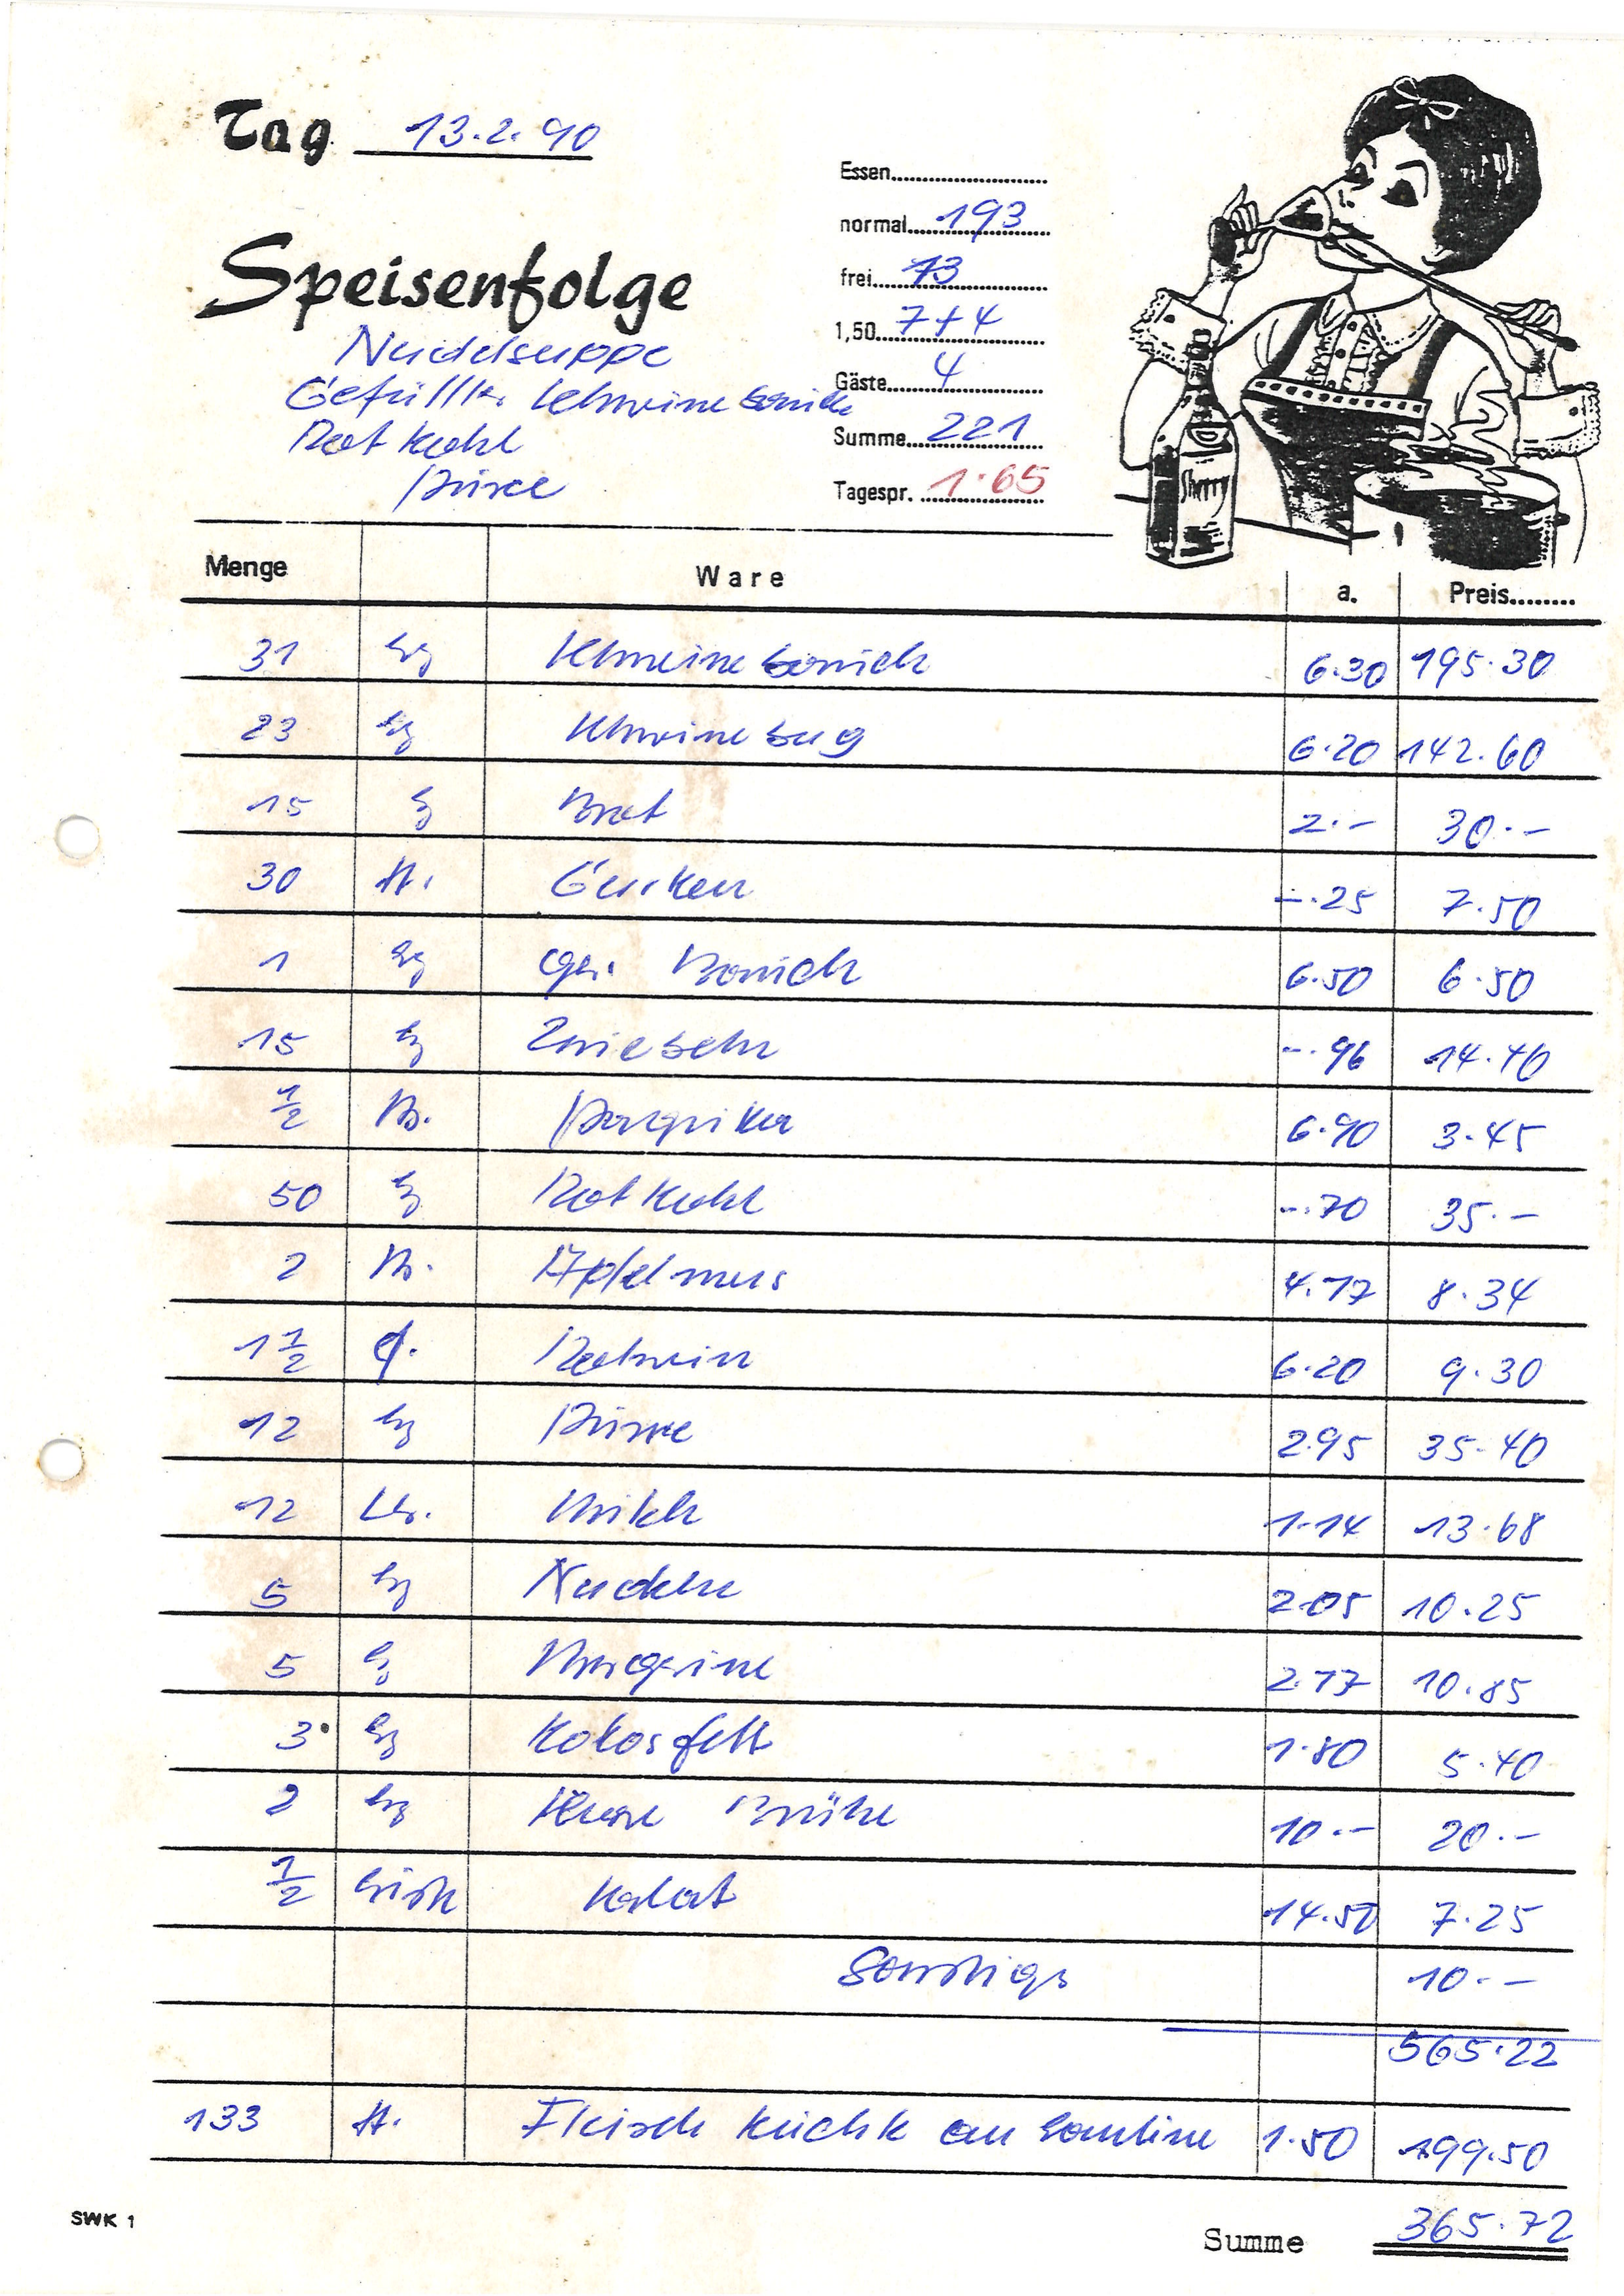 Tag 13.2.90
Essen
normal 193
Speisenfolge
frei 13
Nudelsuppe
1,50 7+4
Gefüllter Schweinebauch
Gäste 4
Rotkohl
Summe 221
Püree
Tagespr. 1.65
Sherry
Menge Ware a. Preis
31 kg Schweinebauch 6.30 195.30
23 kg Schweinebug 6.20 142.60
15 kg Brot 2.- 30.-
30 St. Gurken -.25 7.50
1 kg ger. Bauch 6.50 6.50
15 kg Zwiebeln -.96 14.40
1/2 B. Paprika 6.90 3.45
50 kg Rotkohl -.70 35.-
2 B. Apfelmus 4.17 8.34
1 1/2 Fl. Rotwein 6.20 9.30
12 kg Püree 2.95 35.40
12 Ltr. Milch 1.14 13.68
5 kg Nudeln 2.05 10.25
5 kg Margarine 2.17 10.85
3 kg Kokosfett 1.80 5.40
2 kg Brühe 10.- 20.-
1/2 Salat 14.50 7.25
Sonstiges 10.-
565.22
133 St. Fleisch Küchle an Kantine 1.50 199.50
SWK 1
Summe 365.72